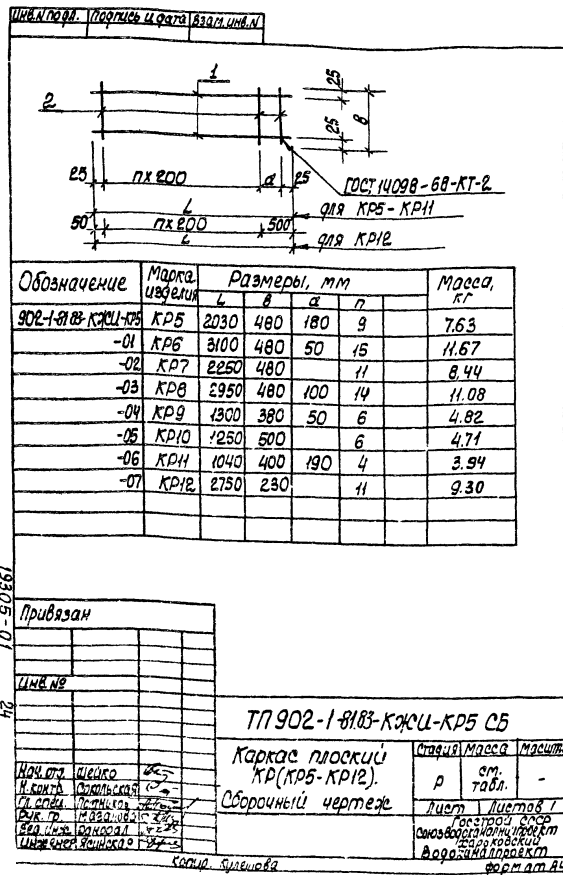 Инв.N подл. Подпись и дата Взам.инв.N
1
2
25
25
В
25 пх200 а 25
ГОСТ 14098-68-КТ-2
L
для КР5-КР11
50 пх200 500
L
для КР12
Обозначение Марка изделия Размеры, мм Масса, кг
L В а п
902-1-81.83-КЖИ-КР5 КР5 2030 480 180 9 7.63
-01 КР6 3100 480 50 15 11.67
-02 КР7 2250 480 11 8,44
-03 КР8 2950 480 100 14 11.08
-04 КР9 1300 380 50 6 4.82
-05 КР10 1250 500 6 4.71
-06 КР11 1040 400 190 4 3.94
-07 КР12 2750 230 11 9.30
19305-01 24
Привязан
Инв №
ТП 902-1-81.83-КЖИ-КР5 СБ
Каркас плоский
КР(КР5-КР12).
Сборочный чертеж
Стадия Масса Масшт.
Р см. табл. -
Лист Листов 1
Госстрой СССР
Союзводоканалпроект
Харьковский
Водоканалпроект
Нач. отд. Шейко
Н.контр. Сокольская
Гл. спец.
Рук. гр.
Вед. инж.
Инженер Ясинская
Копир. Кулешова
Формат А4